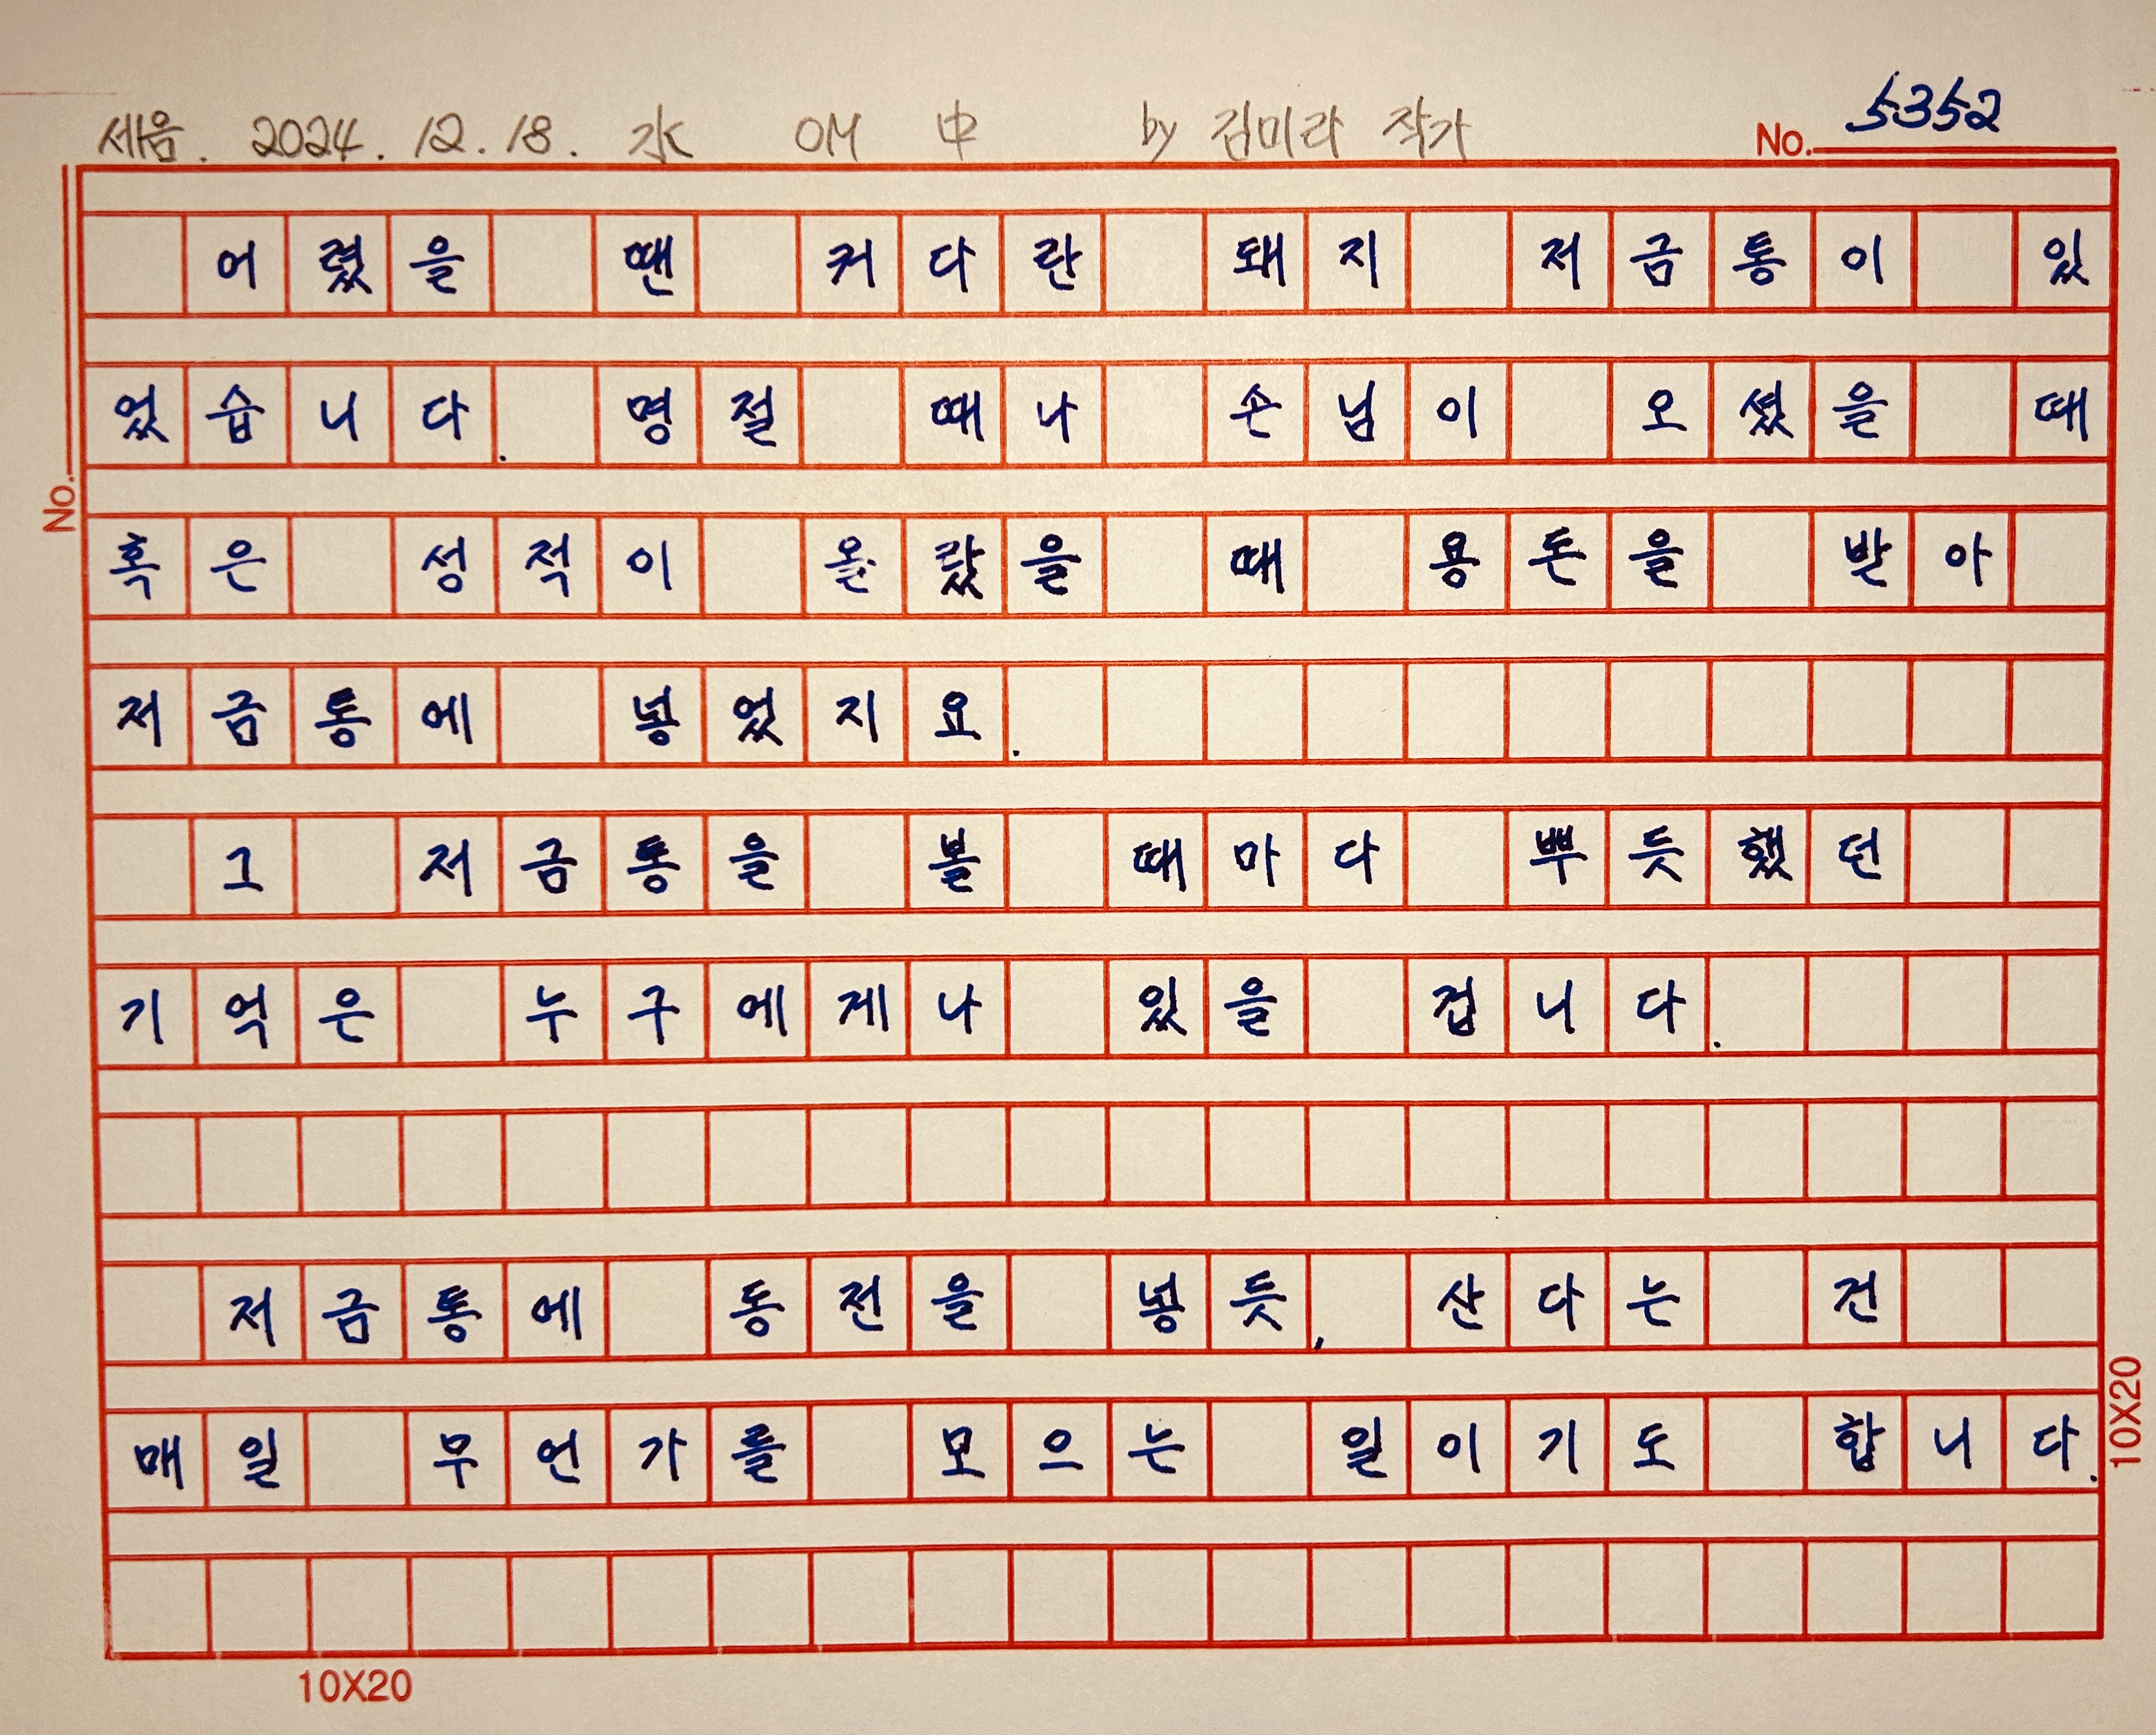 세음. 2024. 12. 18. 水 OM 中 by 김미라 작가 No. 5352
어렸을 땐 커다란 돼지 저금통이 있
었습니다. 명절 때나 손님이 오셨을 때
No.
혹은 성적이 올랐을 때 용돈을 받아
저금통에 넣었지요.
그 저금통을 볼 때마다 뿌듯했던
기억은 누구에게나 있을 겁니다.
저금통에 동전을 넣듯, 산다는 건
매일 무언가를 모으는 일이기도 합니다.
10X20
10X20